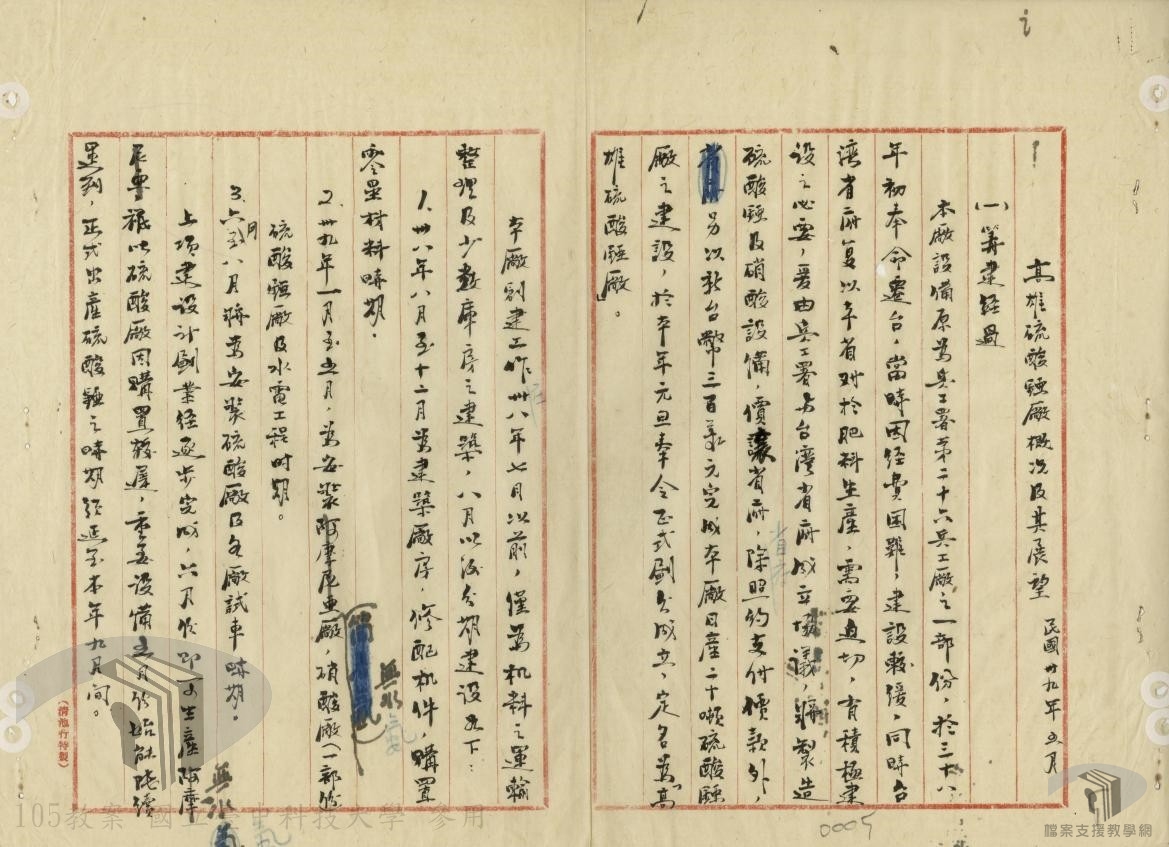 高雄硫酸錏廠概況及其展望
民國卅九年五月
(一)籌建經過
本廠設備原為兵工署第二十六兵工廠之一部份，於三十八
年初奉命遷台，當時因經費困難，建設較緩，同時台
灣省府复以本省對於肥料生產，需要迫切，有積極建
設之必要，爰由兵工署与台灣省府成立協議，將製造
硫酸錏及硝酸設備，價讓省府，除照約支付價款外，
另以新台幣三百萬元完成本廠日產二十噸硫酸錏
廠之建設，於本年元旦奉令正式劃分成立，定名為「高
雄硫酸錏廠」。
本廠創建工作卅八年七月以前，僅為机料之運輸
整理及少數庫房之建築，八月以後分期建設如下：
1.卅八年八月至十二月為建築廠房，修配机件，購置
零星材料時期．
2.卅九年一月至五月，為安裝阿摩尼亞廠，硝酸廠(一部份
硫酸錏廠及水電工程时期。
無水
氨
3.六月至八月將為安裝硫酸廠及各廠試車時期。
上項建設計劃業經逐步完成，六月份即可生產阿摩
無水
氨
尼亞祗以硫酸廠因購置較遲，重要設備五月份始能陸續
運到，正式出產硫酸錏之時期經延至本年九月间。
(清池行特製)
0005
105教案 國立臺中科技大學 參用
檔案支援教學網